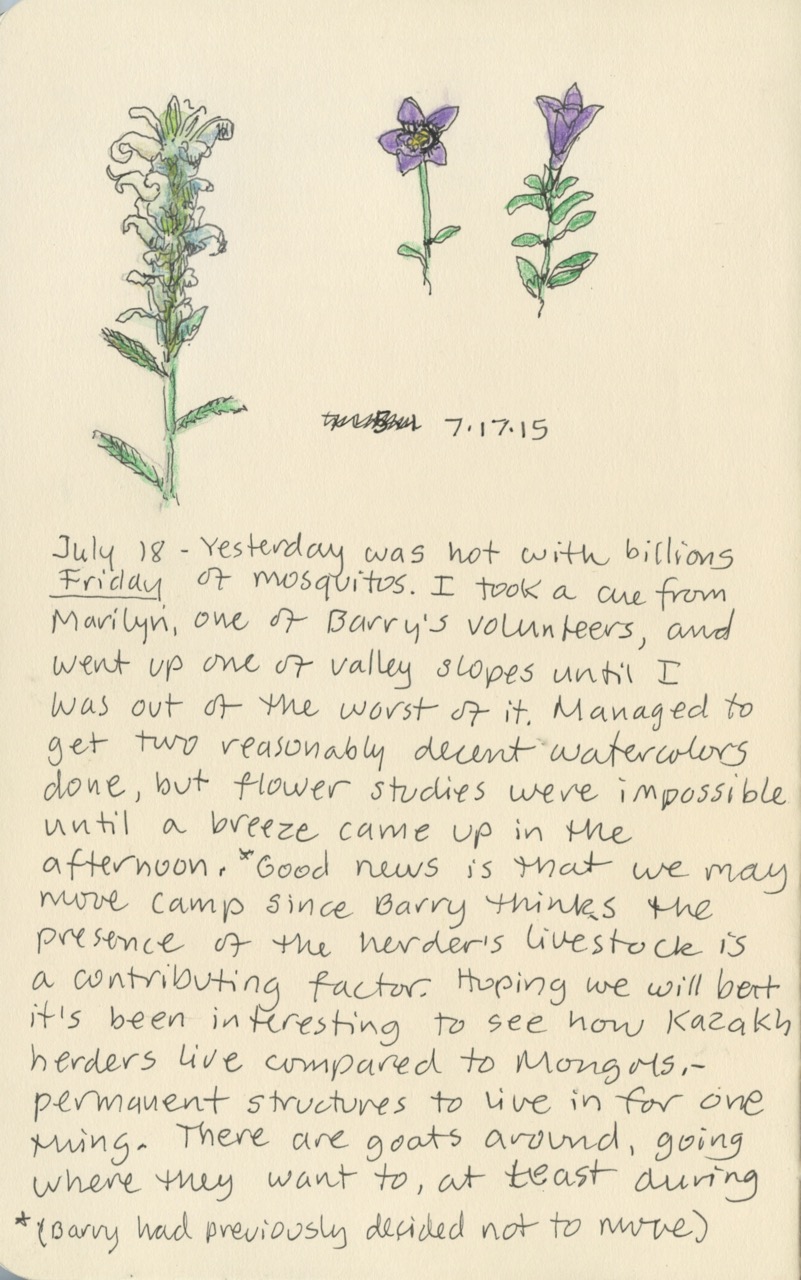 7.17.15
July 18 - Yesterday was hot with billions
Friday of mosquitos. I took a cue from
Marilyn, one of Barry's volunteers, and
went up one of valley slopes until I
was out of the worst of it. Managed to
get two reasonably decent watercolors
done, but flower studies were impossible
until a breeze came up in the
afternoon. *Good news is that we may
move camp since Barry thinks the
presence of the herder's livestock is
a contributing factor. Hoping we will but
it's been interesting to see how Kazakh
herders live compared to Mongols.-
permanent structures to live in for one
thing. There are goats around, going
where they want to, at least during
*(Barry had previously decided not to move)